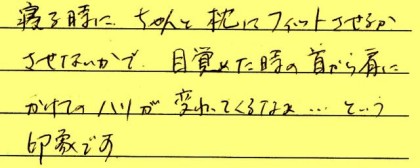 寝る時に ちゃんと枕にフィットさせるか
させないかで、目覚めた時の首から肩に
かけてのハリが 変わってくるなぁ… という
印象です